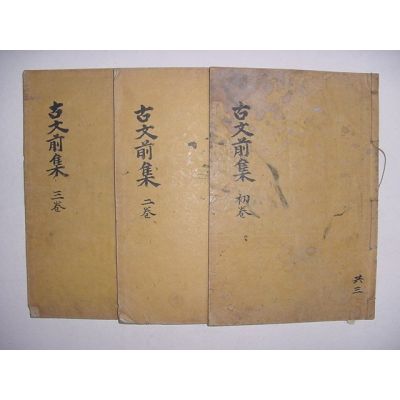 古文前集
初卷
共三
古文前集
二卷
古文前集
三卷